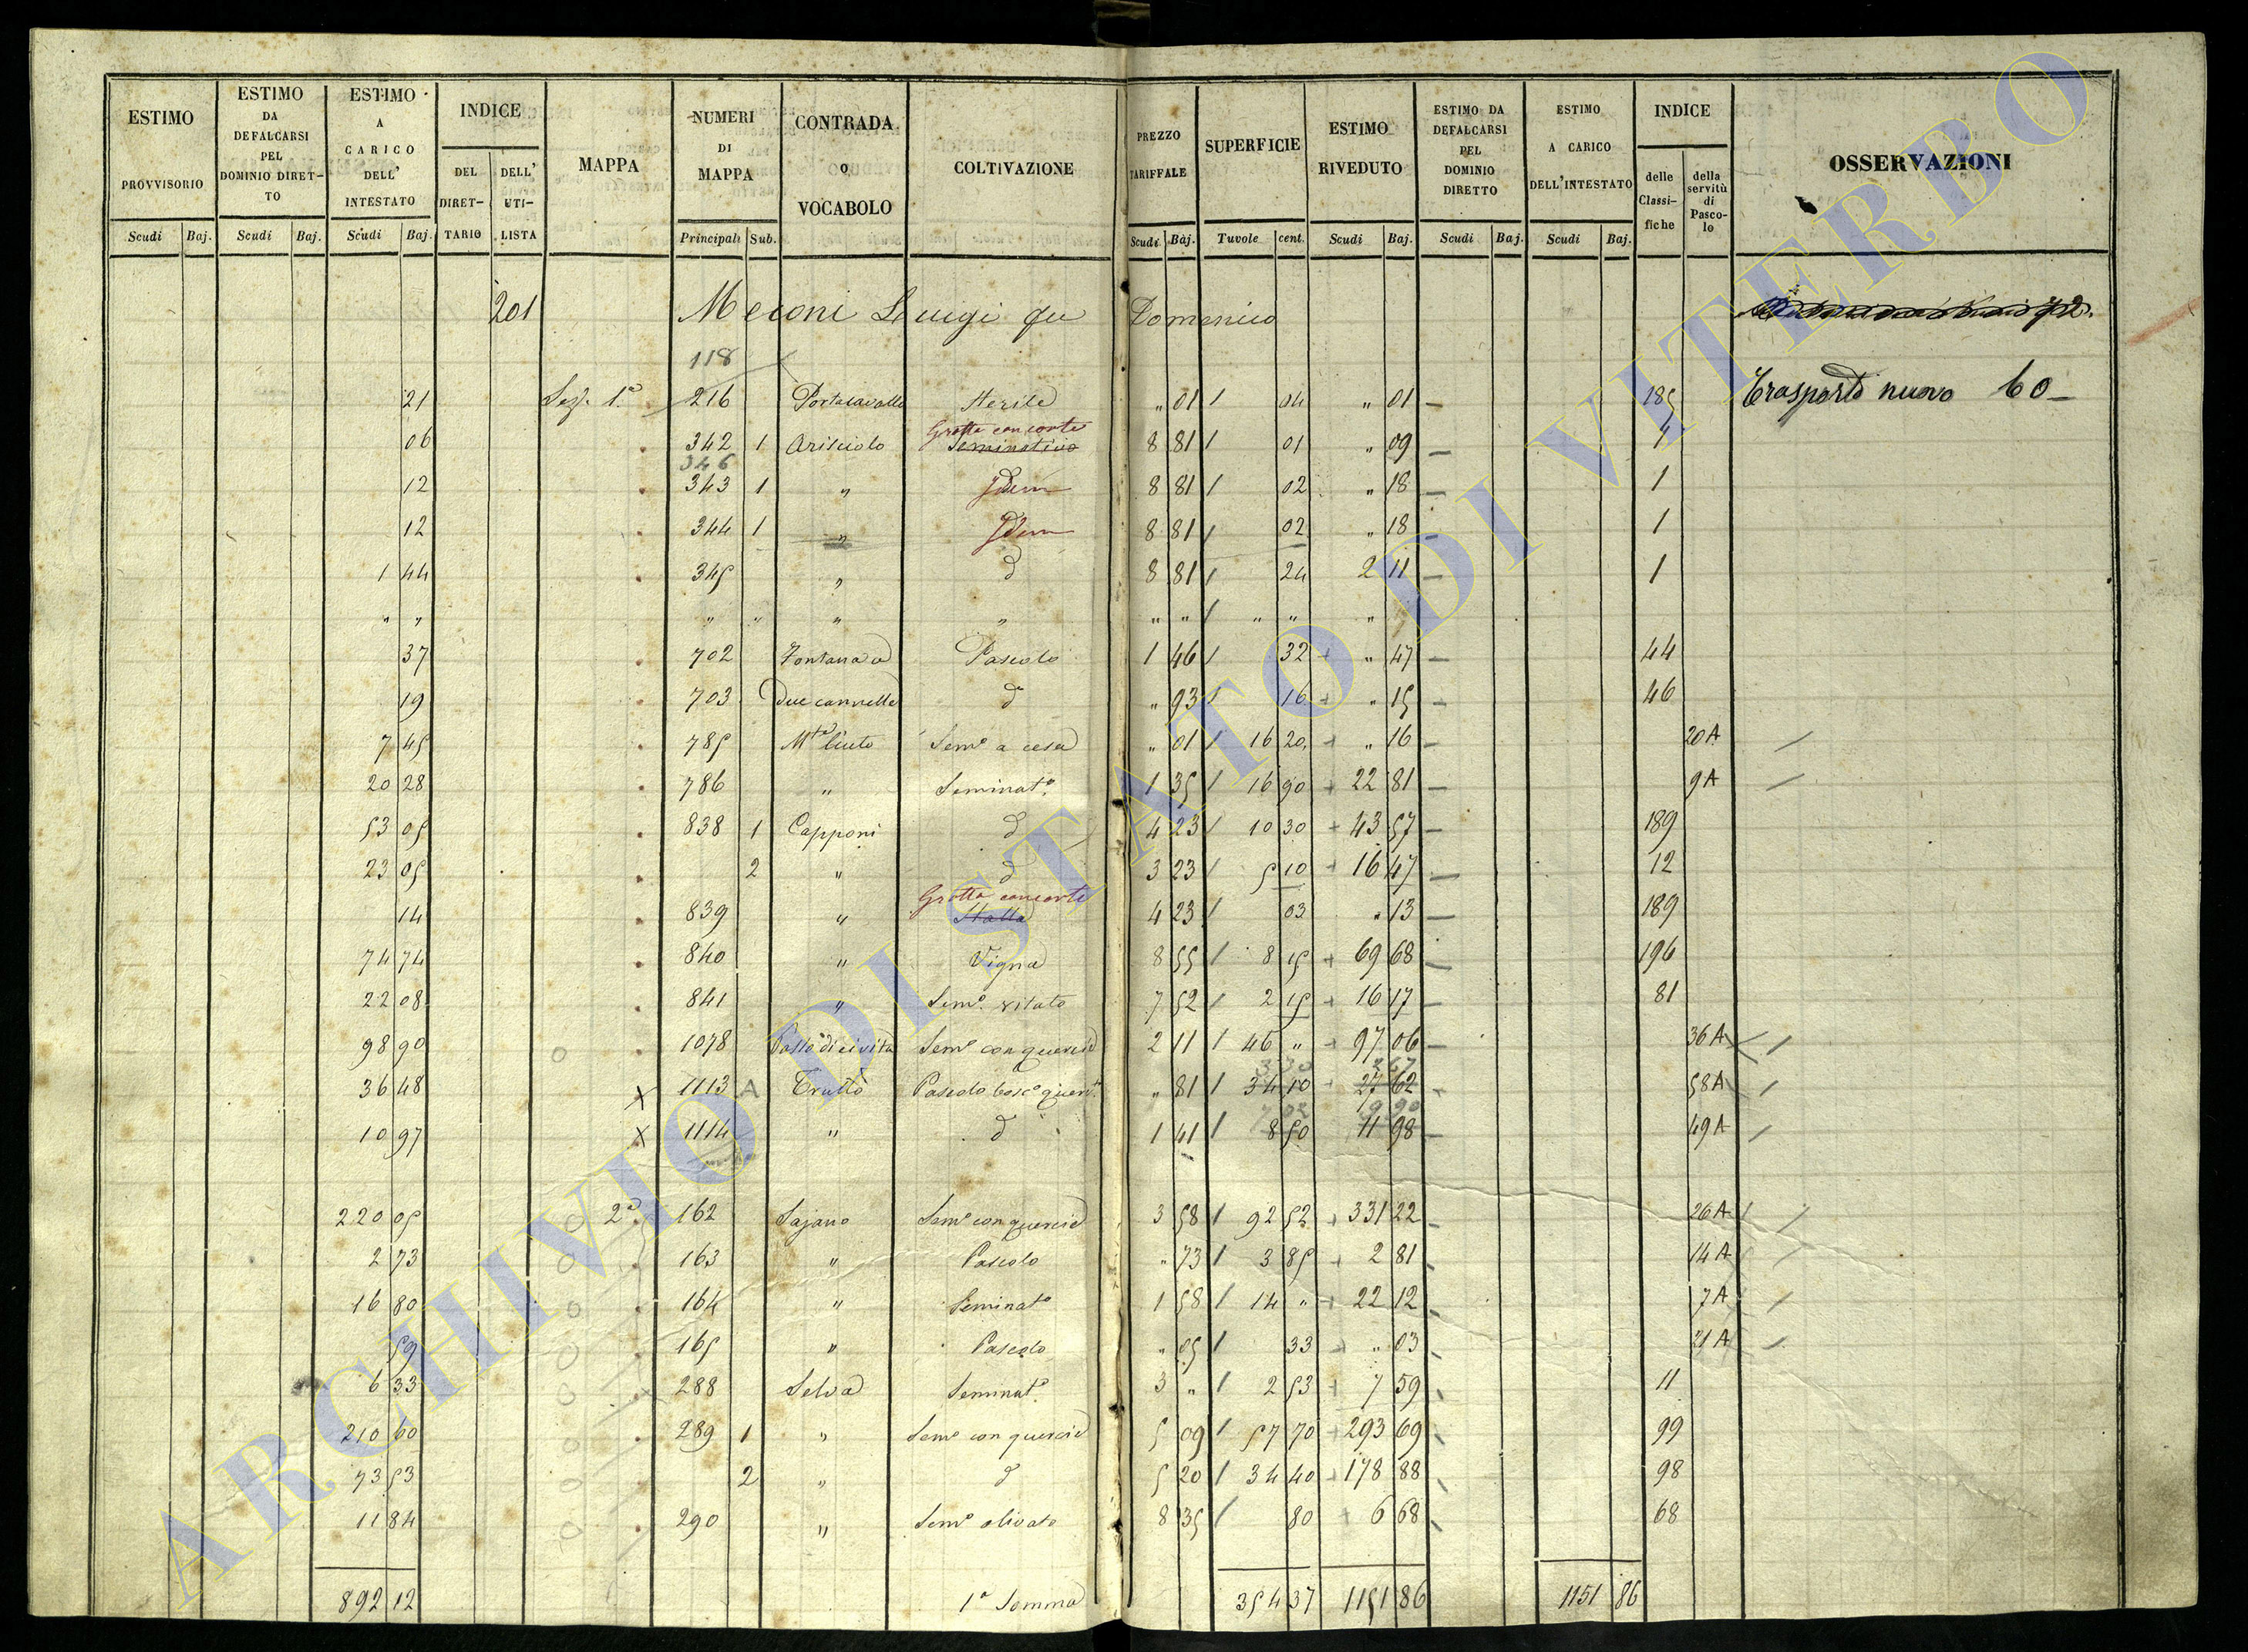 ESTIMO PROVVISORIO Scudi Baj.
ESTIMO DA DEFALCARSI PEL DOMINIO DIRET- TO Scudi Baj.
ESTIMO A CARICO DELL' INTESTATO Scudi Baj.
INDICE DEL DIRET- TARIO DELL' UTI- LISTA
MAPPA
NUMERI DI MAPPA Principali Sub.
CONTRADA O VOCABOLO
COLTIVAZIONE
PREZZO TARIFFALE Scudi Baj.
SUPERFICIE Tavole cent.
ESTIMO RIVEDUTO Scudi Baj.
ESTIMO DA DEFALCARSI PEL DOMINIO DIRETTO Scudi Baj.
ESTIMO A CARICO DELL'INTESTATO Scudi Baj.
INDICE delle Classi- fiche della servitù di Pasco- lo
OSSERVAZIONI
201 Meconi Luigi qu Domenico
118
21 Sez. 1ª 216 Portacavalle Sterile " 01 / 04 " 01 185 Trasporto nuovo 60
Grotta con corte
06 342 1 Arisciolo Seminativo 8 81 / 01 " 09 1
346
12 343 1 " Idem 8 81 / 02 " 18 1
12 344 1 " Idem 8 81 / 02 " 18 1
1 44 345 " d 8 81 / 24 2 11 1
" " " " " " " " / " " "
37 702 Fontana a Pascolo 1 46 / 32 " 47 44
19 703 Due cannelle d " 93 / 16 " 15 46
7 45 785 Semº a cesa " 01 / 16 20 " 16 20A
20 28 786 " Seminatº 1 35 / 16 90 22 81 9A
53 05 838 1 Capponi d 4 23 / 10 30 43 57 189
23 05 2 " d 3 23 / 5 10 16 47 12
Grotta con corte
14 839 " Stalla 4 23 / 03 " 13 189
74 74 840 " Vigna 8 55 / 8 15 69 68 196
22 08 841 " Semº vitato 7 52 / 2 15 16 17 81
98 90 1078 Passo di civita Semº con quercie 2 11 / 46 " 97 06 36A
36 48 X 1113 A Trullo Pascolo boscº querº " 81 / 34 10 27 62 58A
10 97 X 1114 " d 1 41 / 8 50 11 98 49A
220 05 2ª 162 Sajano Semº con quercie 3 58 / 92 52 331 22 26A
2 73 163 " Pascolo " 73 / 3 85 2 81 14A
16 80 164 " Seminatº 1 58 / 14 " 22 12 7A
59 165 " Pascolo " 05 / 33 " 03 21A
6 33 288 Selva Seminatº 3 " / 2 53 7 59 11
210 60 289 1 " Semº con quercie 5 09 / 57 70 293 69 99
73 53 2 " d 5 20 / 34 40 178 88 98
11 84 290 " Semº olivato 8 35 / 80 6 68 68
892 12 1ª Somma 354 37 1151 86 1151 86
ARCHIVIO DI STATO DI VITERBO